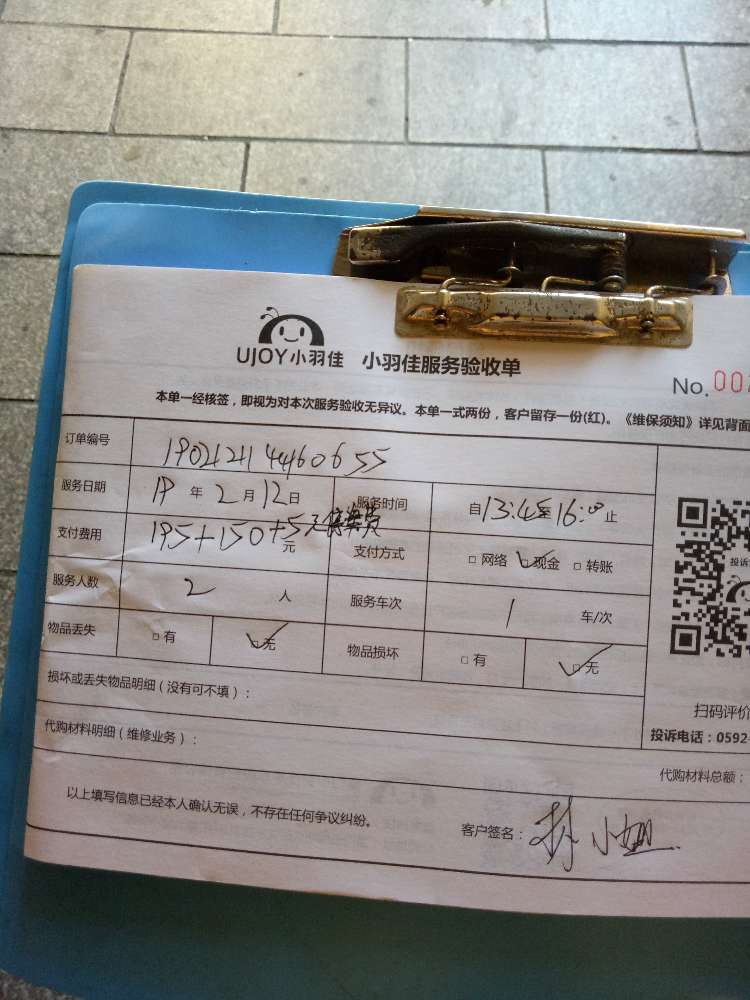 UJOY小羽佳 小羽佳服务验收单
No. 00
本单一经核签，即视为对本次服务验收无异议。本单一式两份，客户留存一份(红)。《维保须知》详见背面
订单编号 190212114460655
服务日期 19 年 2 月 12 日 服务时间 自 13:45 至 16:00 止
支付费用 195+150+5元停车费 元 支付方式 □ 网络 ☑ 现金 □ 转账
服务人数 2 人 服务车次 1 车/次
物品丢失 □ 有 ☑ 无 物品损坏 □ 有 ☑ 无
投诉
扫码评价
投诉电话：0592-
损坏或丢失物品明细（没有可不填）：
代购材料明细（维修业务）：
代购材料总额：
以上填写信息已经本人确认无误，不存在任何争议纠纷。
客户签名： 小姐